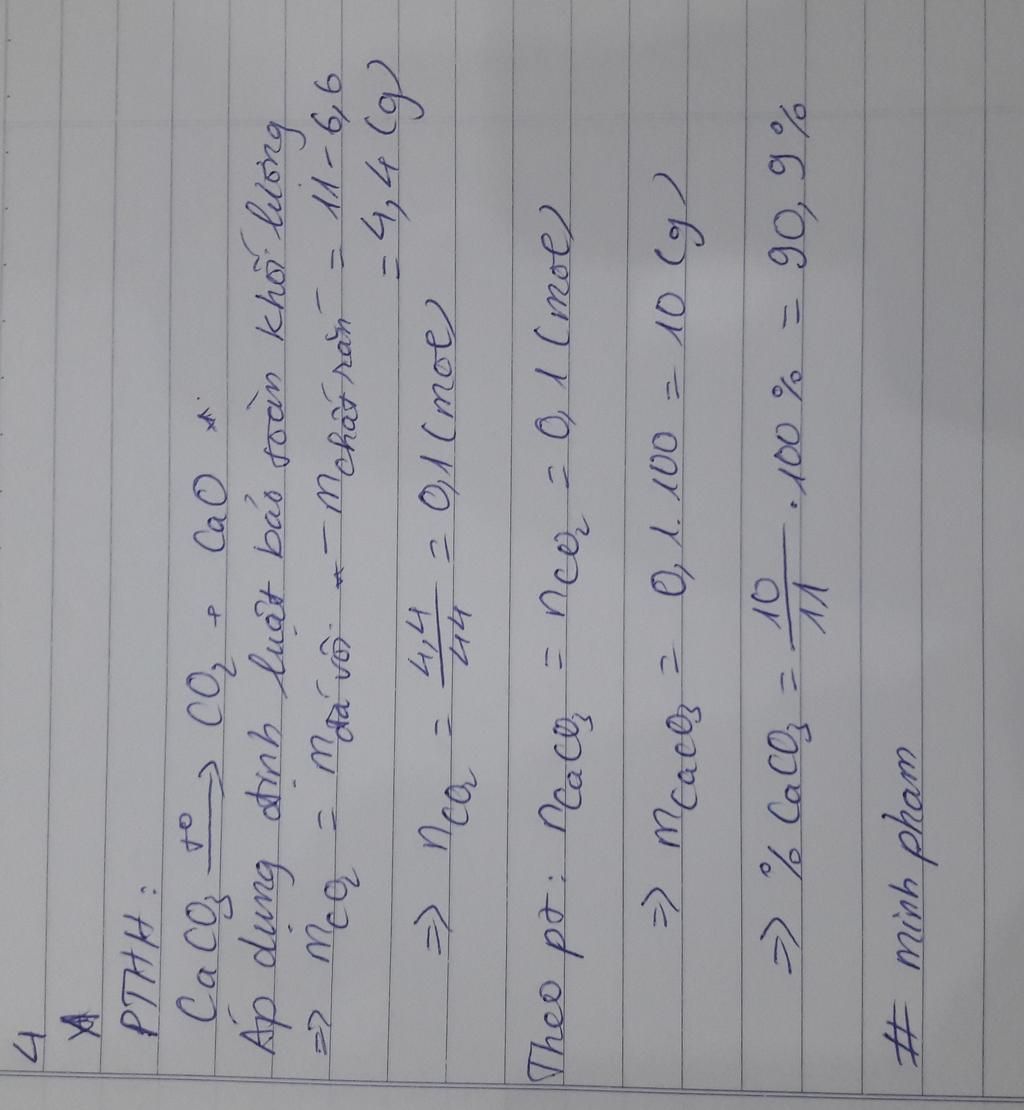 4
PTHH:
CaCO₃ —t°→ CO₂ + CaO
Áp dụng định luật bảo toàn khối lượng
=> mCO₂ = mđá vôi - mchất rắn = 11 - 6,6
= 4,4 (g)
=> nCO₂ = 4,4/44 = 0,1 (mol)
Theo pt: nCaCO₃ = nCO₂ = 0,1 (mol)
=> mCaCO₃ = 0,1.100 = 10 (g)
=> % CaCO₃ = 10/11 . 100% = 90,9%
# minh pham